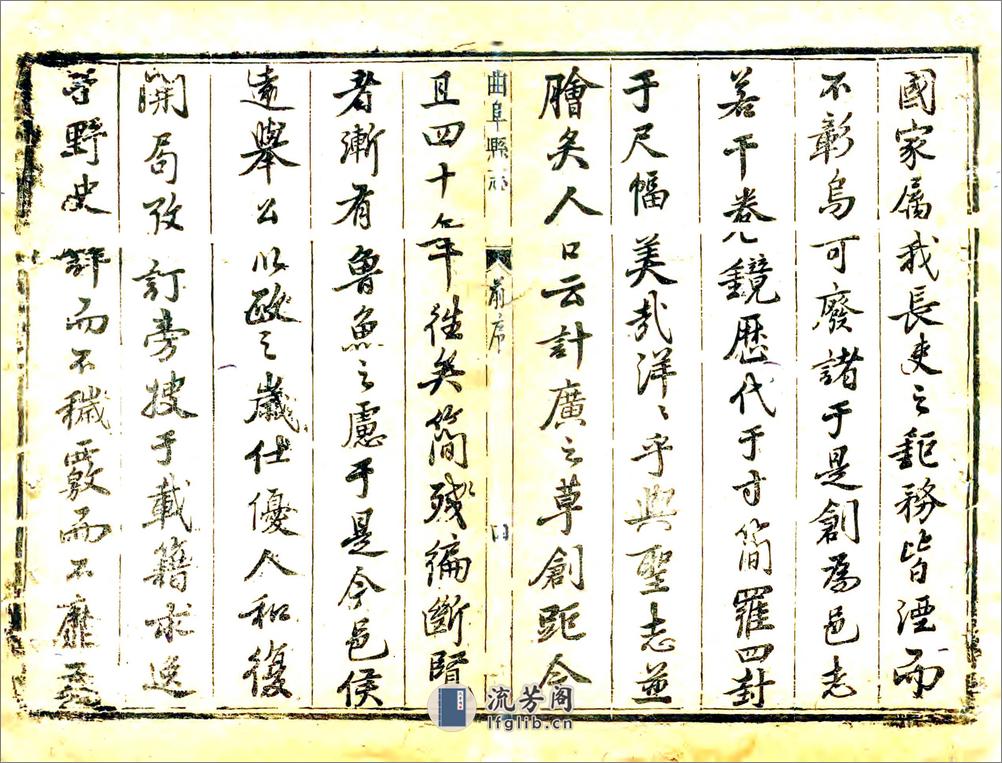 國家属我長吏之鉅務皆湮而
不彰烏可廢諸于是創為邑志
若干卷凡鏡歷代于寸簡羅四封
于尺幅美哉洋〻乎與聖志並
膾炙人口云計廣之草創距今
曲阜縣志
前序
四
且四十年往矣簡殘編斷賢
者漸有魯魚之慮于是今邑侯
遠舉公以政之歲仕優人和復
開局攷訂旁搜于載籍求逸
于野史詳而不穢覈而不靡
流芳阁
lfglib.cn